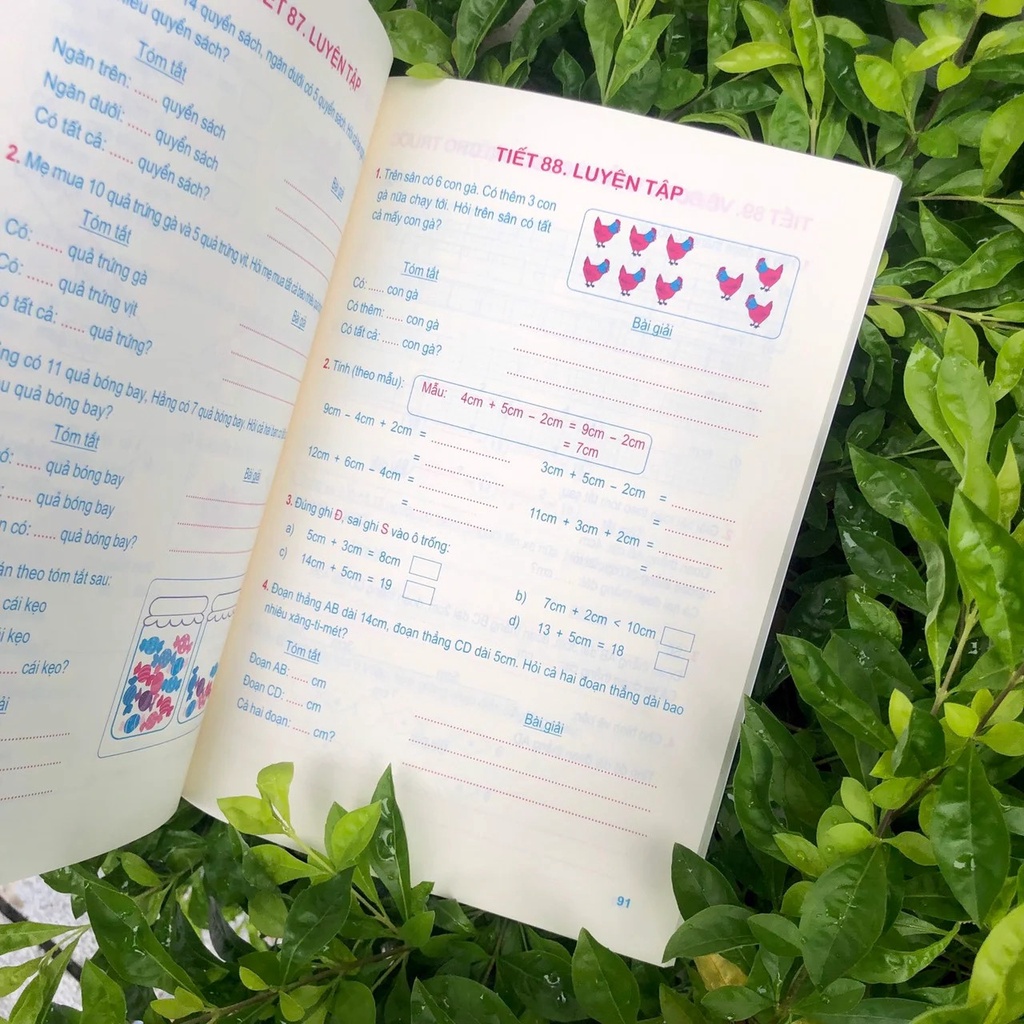 TIẾT 87. LUYỆN TẬP
14 quyển sách, ngăn dưới có 5 quyển sách. Hỏi
quyển sách?
Tóm tắt
Ngăn trên: ...... quyển sách
Ngăn dưới: ...... quyển sách
Có tất cả: ...... quyển sách?
Bài giải
2. Mẹ mua 10 quả trứng gà và 5 quả trứng vịt. Hỏi mẹ mua tất cả bao nhiêu
Tóm tắt
Có: ...... quả trứng gà
Có: ...... quả trứng vịt
tất cả: ...... quả trứng?
Bài giải
có 11 quả bóng bay, Hằng có 7 quả bóng bay. Hỏi cả hai bạn
quả bóng bay?
Tóm tắt
...... quả bóng bay
...... quả bóng bay
có: ...... quả bóng bay?
Bài giải
theo tóm tắt sau:
cái kẹo
kẹo
...... cái kẹo?
TIẾT 88. LUYỆN TẬP
1. Trên sân có 6 con gà. Có thêm 3 con
gà nữa chạy tới. Hỏi trên sân có tất
cả mấy con gà?
Tóm tắt
Có: ...... con gà
Có thêm: ...... con gà
Có tất cả: ...... con gà?
Bài giải
2. Tính (theo mẫu):
Mẫu: 4cm + 5cm – 2cm = 9cm – 2cm
= 7cm
9cm – 4cm + 2cm =
=
3cm + 5cm – 2cm =
=
12cm + 6cm – 4cm =
=
11cm + 3cm + 2cm =
=
3. Đúng ghi Đ, sai ghi S vào ô trống:
a) 5cm + 3cm = 8cm
b) 7cm + 2cm < 10cm
c) 14cm + 5cm = 19
d) 13 + 5cm = 18
4. Đoạn thẳng AB dài 14cm, đoạn thẳng CD dài 5cm. Hỏi cả hai đoạn thẳng dài bao
nhiêu xăng-ti-mét?
Tóm tắt
Đoạn AB: ...... cm
Đoạn CD: ...... cm
Cả hai đoạn: ...... cm?
Bài giải
91